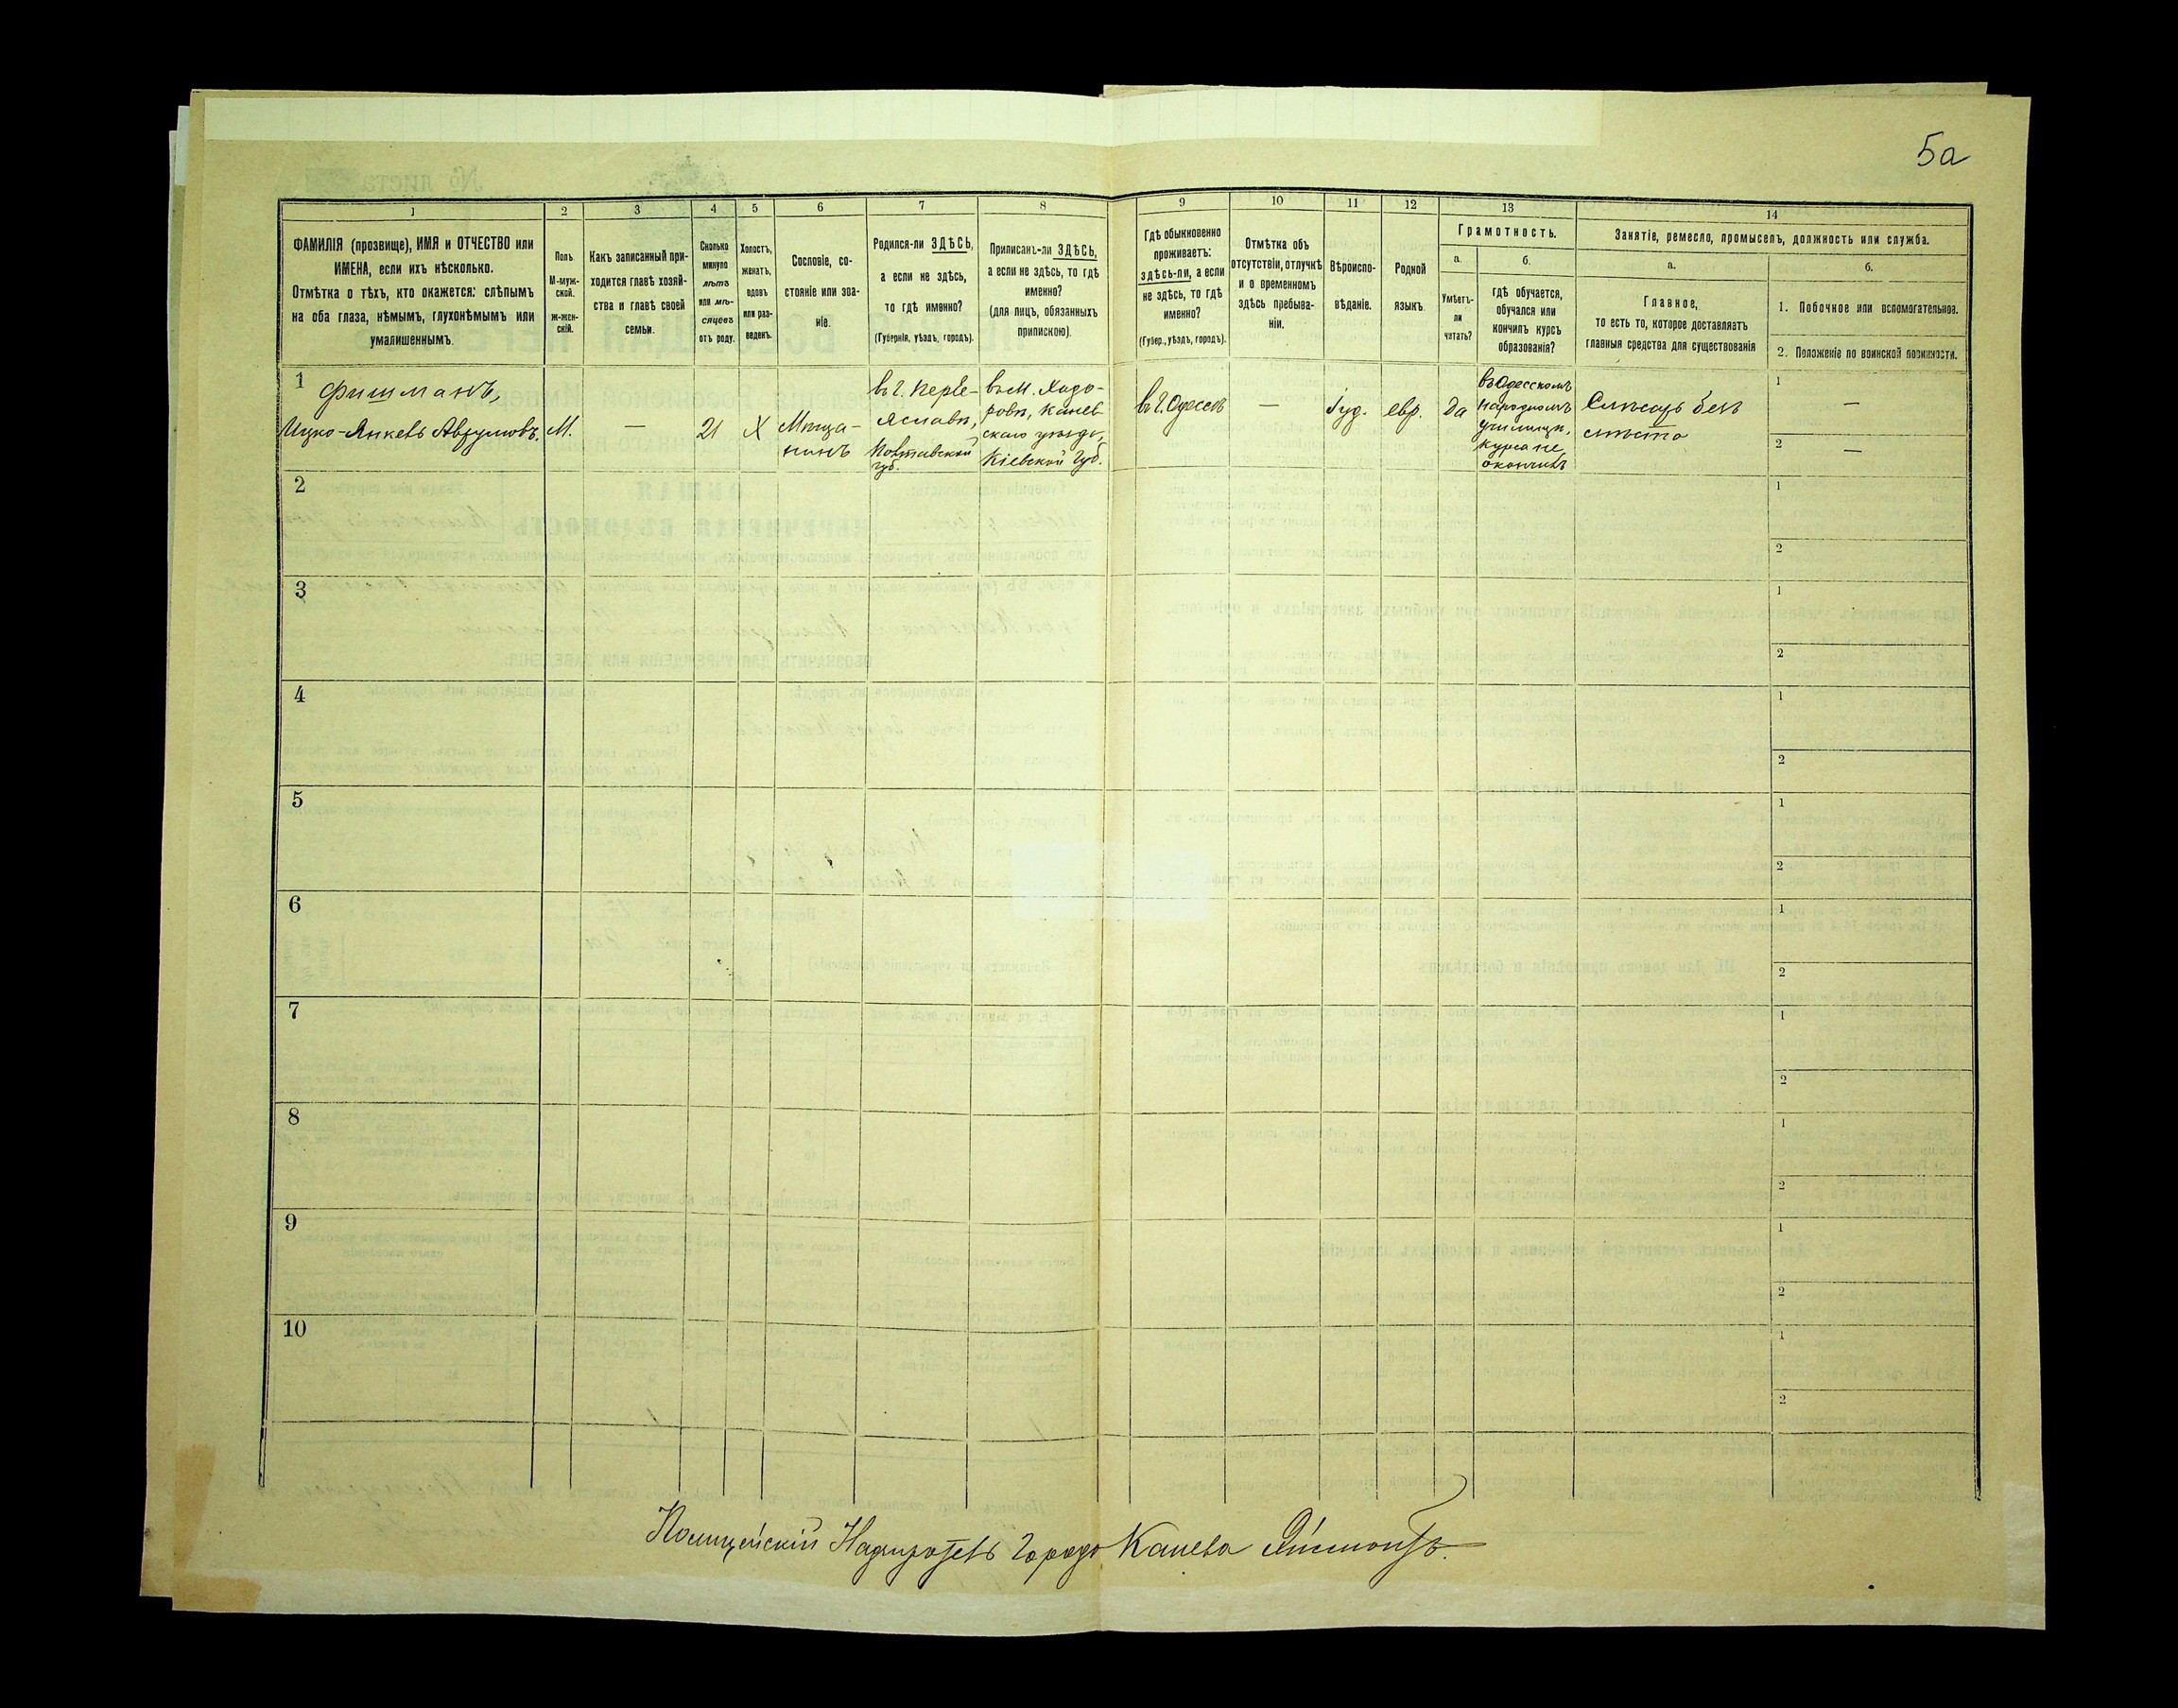 5а
1
2
3
4
5
6
7
8
9
10
11
12
13
14
ФАМИЛІЯ (прозвище), ИМЯ и ОТЧЕСТВО или
ИМЕНА, если ихъ нѣсколько.
Отмѣтка о тѣхъ, кто окажется: слѣпымъ
на оба глаза, нѣмымъ, глухонѣмымъ или
умалишеннымъ.
Полъ.
М-муж-
ской.
ж-жен-
скій.
Какъ записанный при-
ходится главѣ хозяй-
ства и главѣ своей
семьи.
Сколько
минуло
лѣтъ
или мѣ-
сяцевъ
отъ роду.
Холостъ,
женатъ,
вдовъ
или раз-
веденъ.
Сословіе, со-
стояніе или зва-
ніе.
Родился-ли ЗДѢСЬ,
а если не здѣсь,
то гдѣ именно?
(Губернія, уѣздъ, городъ).
Приписанъ-ли ЗДѢСЬ,
а если не здѣсь, то гдѣ
именно?
(для лицъ, обязанныхъ
припискою).
Гдѣ обыкновенно
проживаетъ:
здѣсь-ли, а если
не здѣсь, то гдѣ
именно?
(Губер., уѣздъ, городъ).
Отмѣтка объ
отсутствіи, отлучкѣ
и о временномъ
здѣсь пребыва-
ніи.
Вѣроиспо-
вѣданіе.
Родной
языкъ.
Грамотность.
а.
Умѣетъ-
ли
читать?
б.
гдѣ обучается,
обучался или
кончилъ курсъ
образованія?
Занятіе, ремесло, промыселъ, должность или служба.
а.
Главное,
то есть то, которое доставляетъ
главныя средства для существованія
б.
1. Побочное или вспомогательное.
2. Положеніе по воинской повинности.
1
Фишманъ,
Ицко-Янкевъ Аврумовъ.
М.
—
21
Х
Мѣща-
нинъ
въ г. Перея-
яславѣ,
Полтавской
губ.
въ м. Ходо-
ровѣ, Канев-
скаго уѣзда,
Кіевской Губ.
въ г. Одессѣ
—
Іуд.
евр.
Да
въ Одесскомъ
народномъ
училищѣ,
курса не
окончилъ
Слѣсарь безъ
мѣста
1
—
2
—
2
1
2
3
1
2
4
1
2
5
1
2
6
1
2
7
1
2
8
1
2
9
1
2
10
1
2
Полицейскій Надзиратель города Канева